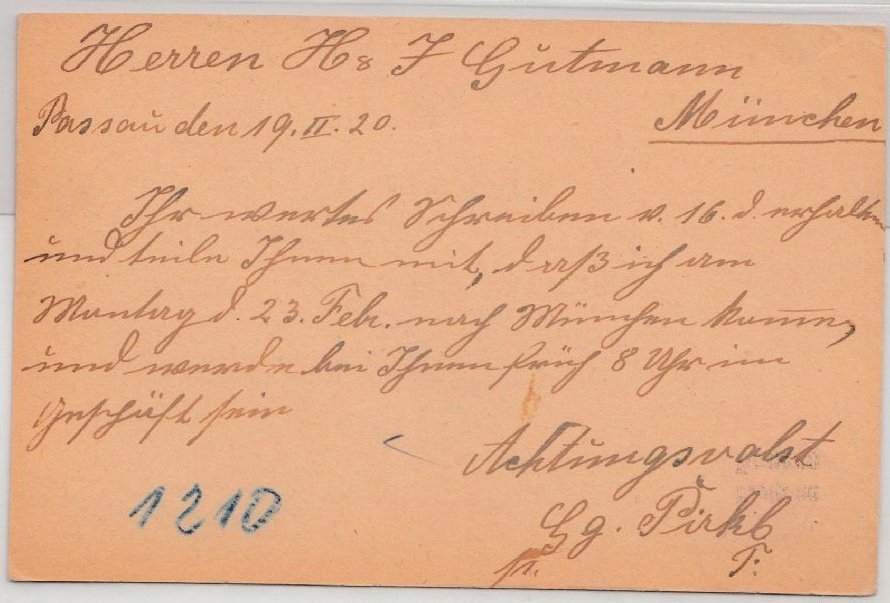 Herren H & J Gutmann
Passau den 19. II. 20.
München
Ihr wertes Schreiben v. 16. d. erhalten
und teile Ihnen mit, daß ich am
Montag d. 23. Febr. nach München kom̅e,
und werde bei Ihnen früh 8 Uhr im
Geschäft sein
Achtungsvolst
Gg. Pirkl
1210